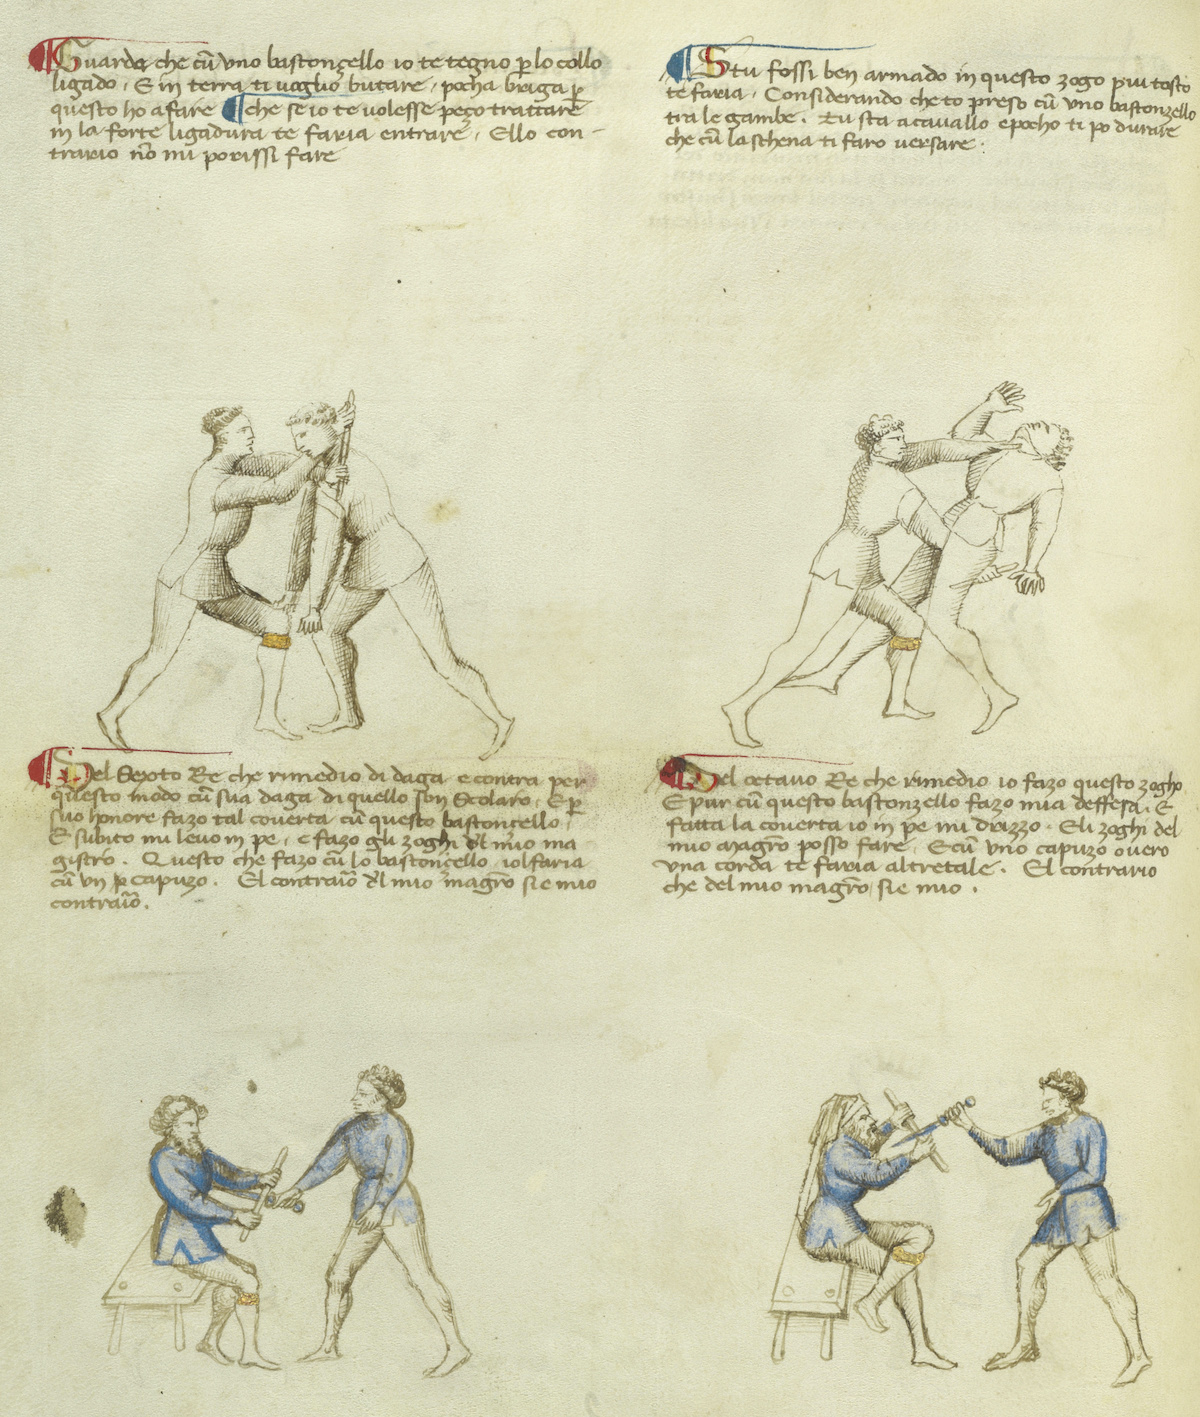 Guarda che cū uno bastonçello io te tegno ꝑ lo collo
ligado, E in terra ti voglio butare, pocha briga ꝑ
questo ho a fare ¶ che se io te volesse peço trattare
in la forte ligadura te faria entrare, Ello con-
trario nō mi porissi fare
Stu fossi ben armado in questo zogo piu tosto
te faria, Considerando che to preso cū uno bastonzello
tra le gambe. Tu sta a cavallo e pocho ti po durare
che cū la schena ti faro versare.
Del Sexto Re che rimedio di daga e contra per
questo modo cū sua daga di quello son Scolaro, E ꝑ
suo honore fazo tal coverta cū questo bastoncello,
E subito mi levo in pe, e fazo gli zoghi dl mio ma
gistro. Questo che fazo cū lo bastonçello, io lfaria
cū un capuzo. El contraīo dl mio magr̄o si e mio
contraīo.
Del octavo Re che rimedio io fazo questo zogho
E pur cū questo bastonzello fazo mia deffesa. E
fatta la coverta io in pe mi drizzo. E li zoghi del
mio magr̄o posso fare, E cū uno capuzo overo
una corda te faria altretale. El contrario
che del mio magr̄o, si e mio.